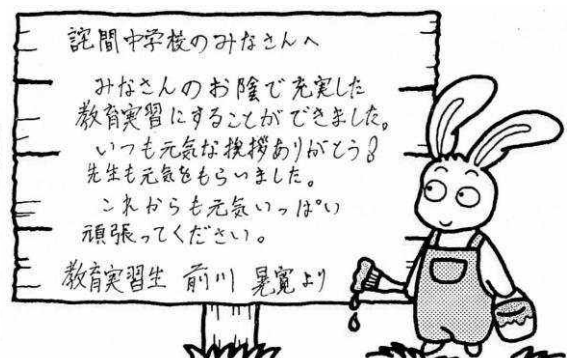 詫間中学校のみなさんへ
みなさんのお陰で充実した
教育実習にすることができました。
いつも元気な挨拶ありがとう
先生も元気をもらいました。
これからも元気いっぱい
頑張ってください。
教育実習生 前川 晃寛より